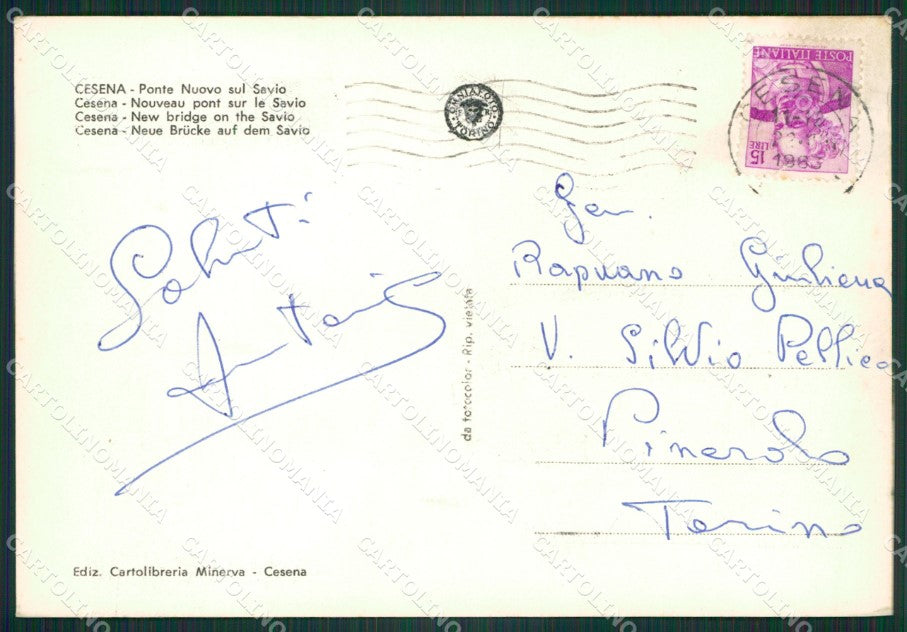 CESENA - Ponte Nuovo sul Savio
Cesena - Nouveau pont sur le Savio
Cesena - New bridge on the Savio
Cesena - Neue Brücke auf dem Savio
OMNIAFOTO
TORINO
POSTE ITALIANE
15 LIRE
CESENA
1963
Saluti
Gen.
Rapuano Giuliana
V. Silvio Pellico
Pinerolo
Torino
da fotocolor - Rip. vietata
Ediz. Cartolibreria Minerva - Cesena
CARTOLINOMANIA